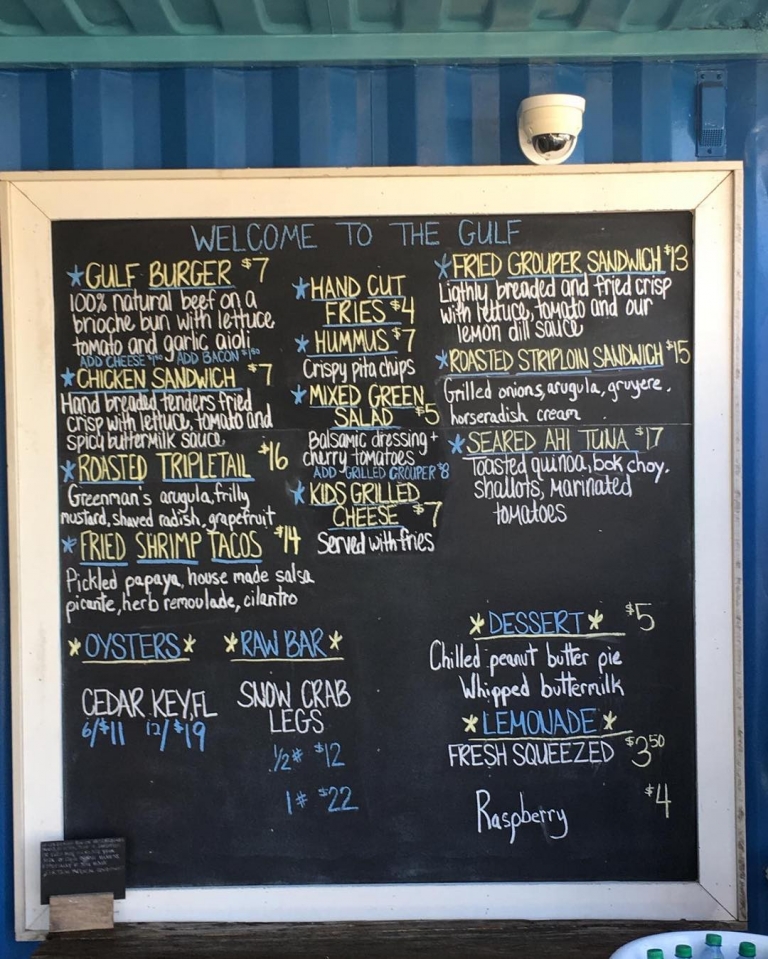 WELCOME TO THE GULF
*GULF BURGER $7
100% natural beef on a
brioche bun with lettuce
tomato and garlic aioli
ADD CHEESE $1.50 / ADD BACON $1.50
*CHICKEN SANDWICH $7
Hand breaded tenders fried
crisp with lettuce, tomato and
spicy buttermilk sauce
*ROASTED TRIPLETAIL $16
Greenman's arugula, frilly
mustard, shaved radish, grapefruit
*FRIED SHRIMP TACOS $14
Pickled papaya, house made salsa
picante, herb remoulade, cilantro
*HAND CUT
FRIES $4
*HUMMUS $7
Crispy pita chips
*MIXED GREEN
SALAD $5
Balsamic dressing +
cherry tomatoes
ADD GRILLED GROUPER $8
*KIDS GRILLED
CHEESE $7
Served with fries
*FRIED GROUPER SANDWICH $13
Ligthly breaded and fried crisp
with lettuce, tomato and our
lemon dill sauce
*ROASTED STRIPLOIN SANDWICH $15
Grilled onions, arugula, gruyere,
horseradish cream
*SEARED AHI TUNA $17
Toasted quinoa, bok choy,
shallots, marinated
tomatoes
*OYSTERS*
CEDAR KEY, FL
6/$11 12/$19
*RAW BAR*
SNOW CRAB
LEGS
1/2# $12
1# $22
*DESSERT* $5
Chilled peanut butter pie
Whipped buttermilk
*LEMONADE*
FRESH SQUEEZED $3.50
Raspberry $4